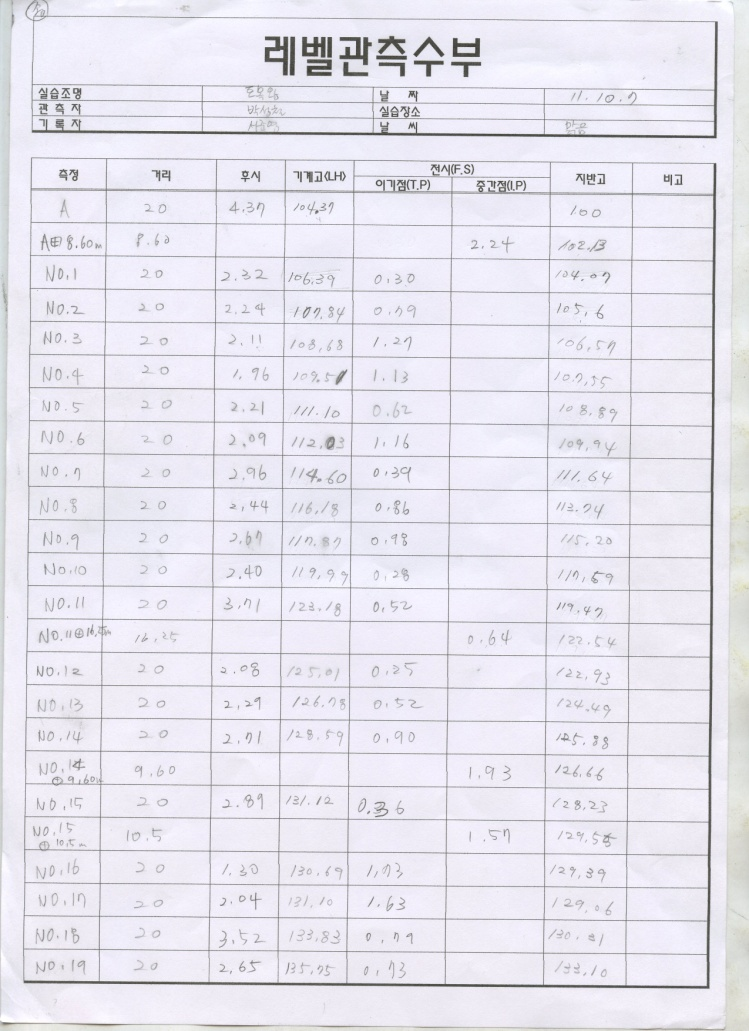 레벨관측수부
실습조명 날 짜 11.10.7
관측자 실습장소
기록자 날 씨 맑음
측정 거리 후시 기계고(LH) 전시(F.S) 지반고 비고
이기점(T.P) 중간점(I.P)
A 20 4.37 104.37 100
A⊞8.60m 8.60 2.24 102.13
NO.1 20 2.32 106.39 0.30 104.07
NO.2 20 2.24 107.84 0.79 105.6
NO.3 20 2.11 108.68 1.27 106.57
NO.4 20 1.96 109.51 1.13 107.55
NO.5 20 2.21 111.10 0.62 108.89
NO.6 20 2.09 112.03 1.16 109.94
NO.7 20 2.96 114.60 0.39 111.64
NO.8 20 2.44 116.18 0.86 113.74
NO.9 20 2.67 117.87 0.98 115.20
NO.10 20 2.40 119.99 0.28 117.59
NO.11 20 3.71 123.18 0.52 119.47
NO.11⊕16.25m 16.25 0.64 122.54
NO.12 20 2.08 125.01 0.25 122.93
NO.13 20 2.29 126.78 0.52 124.49
NO.14 20 2.71 128.59 0.90 125.88
NO.14 9.60 1.93 126.66
⊕9.60m
NO.15 20 2.89 131.12 0.36 128.23
NO.15 10.5 1.57 129.55
⊕10.5m
NO.16 20 1.30 130.69 1.73 129.39
NO.17 20 2.04 131.10 1.63 129.06
NO.18 20 3.52 133.83 0.79 130.31
NO.19 20 2.65 135.75 0.73 133.10